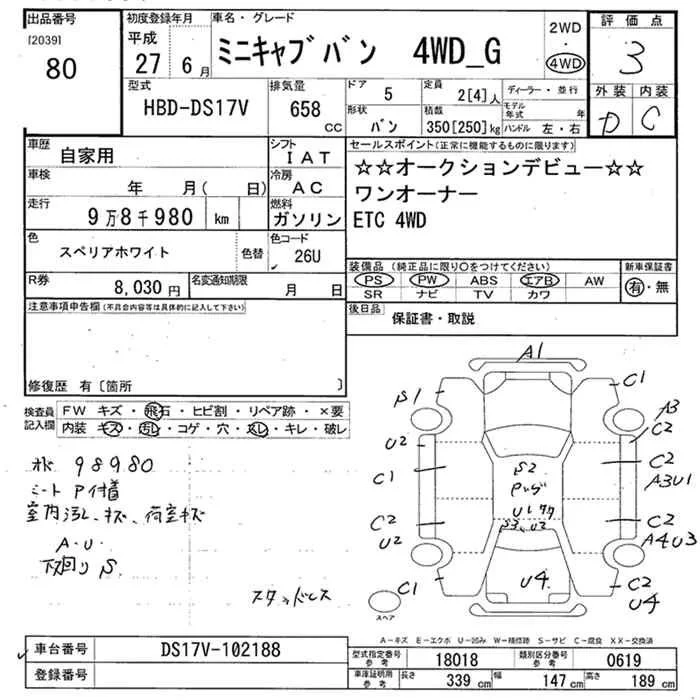 出品番号
[2039]
80
初度登録年月
平成
27年 6月
車名・グレード
ミニキャブバン 4WD_G
2WD
・
4WD
評価点
3
外装 内装
D C
型式
HBD-DS17V
排気量
658
CC
ドア
5
定員
2[4]人
ディーラー・並行
形状
バン
積載
350[250]kg
モデル年式 年
ハンドル 左・右
車歴
自家用
シフト
IAT
車検
年 月( 日)
冷房
AC
走行
9万8千980 km
燃料
ガソリン
色
スペリアホワイト
色替
色コード
26U
R券
8,030円
名変通知期限
月 日
セールスポイント(正常に機能するものに限ります)
☆☆オークションデビュー☆☆
ワンオーナー
ETC 4WD
装備品(純正品に限り○をつけてください)
PS PW ABS エアB AW
SR ナビ TV カワ
新車保証書
有・無
後日品
保証書・取説
注意事項申告欄(不具合内容等は具体的に記入して下さい)
修復歴 有[箇所 ]
検査員
記入欄
FW キズ・飛石・ヒビ割・リペア跡・×要
内装 キズ・汚レ・コゲ・穴・スレ・キレ・破レ
98980
シート P付着
室内汚レ、キズ、荷室キズ
A・U
下回りS
スタッドレス
A1
C1
S1
A3
C2
U2
C1
C2
A3U1
S2
U1
S3 U2
C2
U2
C2
A4U3
C1
U4
C2
U4
スペア
A-キズ E-エクボ U-凹み W-補修跡 S-サビ C-腐食 XX-交換済
車台番号
DS17V-102188
登録番号
型式指定番号
参考
18018
類別区分番号
参考
0619
車庫証明用
参考
長さ 339 cm 幅 147 cm 高さ 189 cm